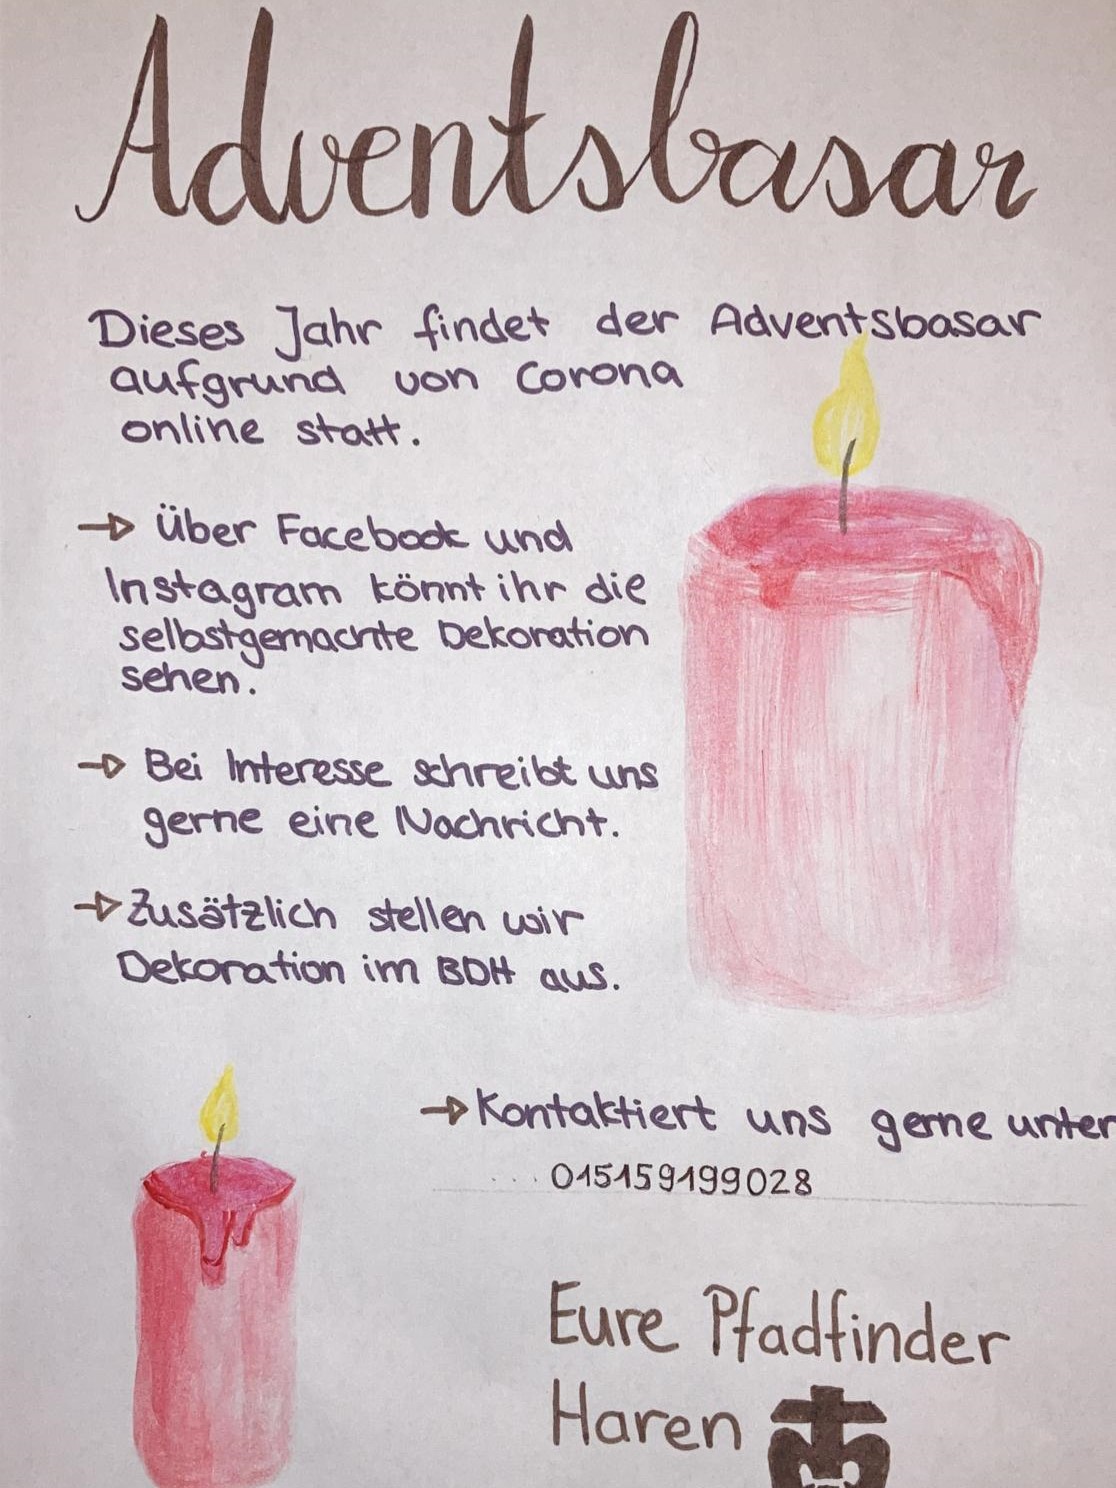 Adventsbasar
Dieses Jahr findet der Adventsbasar
aufgrund von Corona
online statt.
→ Über Facebook und
Instagram könnt ihr die
selbstgemachte Dekoration
sehen.
→ Bei Interesse schreibt uns
gerne eine Nachricht.
→ Zusätzlich stellen wir
Dekoration im BDH aus.
→ Kontaktiert uns gerne unter
... 015159199028
Eure Pfadfinder
Haren